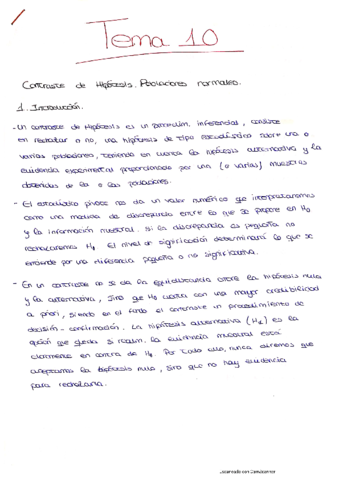 Tema 10
Contraste de Hipótesis. Poblaciones normales.
1. Introducción.
- Un contraste de hipótesis es un procedim. inferencial, consiste
en rechazar o no, una hipótesis de tipo estadística sobre una o
varias poblaciones, teniendo en cuenta la hipótesis alternativa y la
evidencia experimental proporcionada por una (o varias) muestras
obtenidas de la o las poblaciones.
- El estadístico pivote nos da un valor numérico que interpretaremos
como una medida de discrepancia entre lo que se propone en H0
y la información muestral. Si la discrepancia es pequeña no
rechazaremos H0. El nivel de significación determinará lo que se
entiende por una diferencia pequeña o no significativa.
- En un contraste no se da la equidistancia entre la hipótesis nula
y la alternativa, sino que H0 cuenta con una mayor credibilidad
a priori, siendo en el fondo el contraste un procedimiento de
decisión - confirmación. La hipótesis alternativa (H1) es la
opción que queda si la evidencia muestral está
claramente en contra de H0. Por todo ello, nunca diremos que
aceptamos la hipótesis nula, sino que no hay evidencia
para rechazarla.
Escaneado con CamScanner